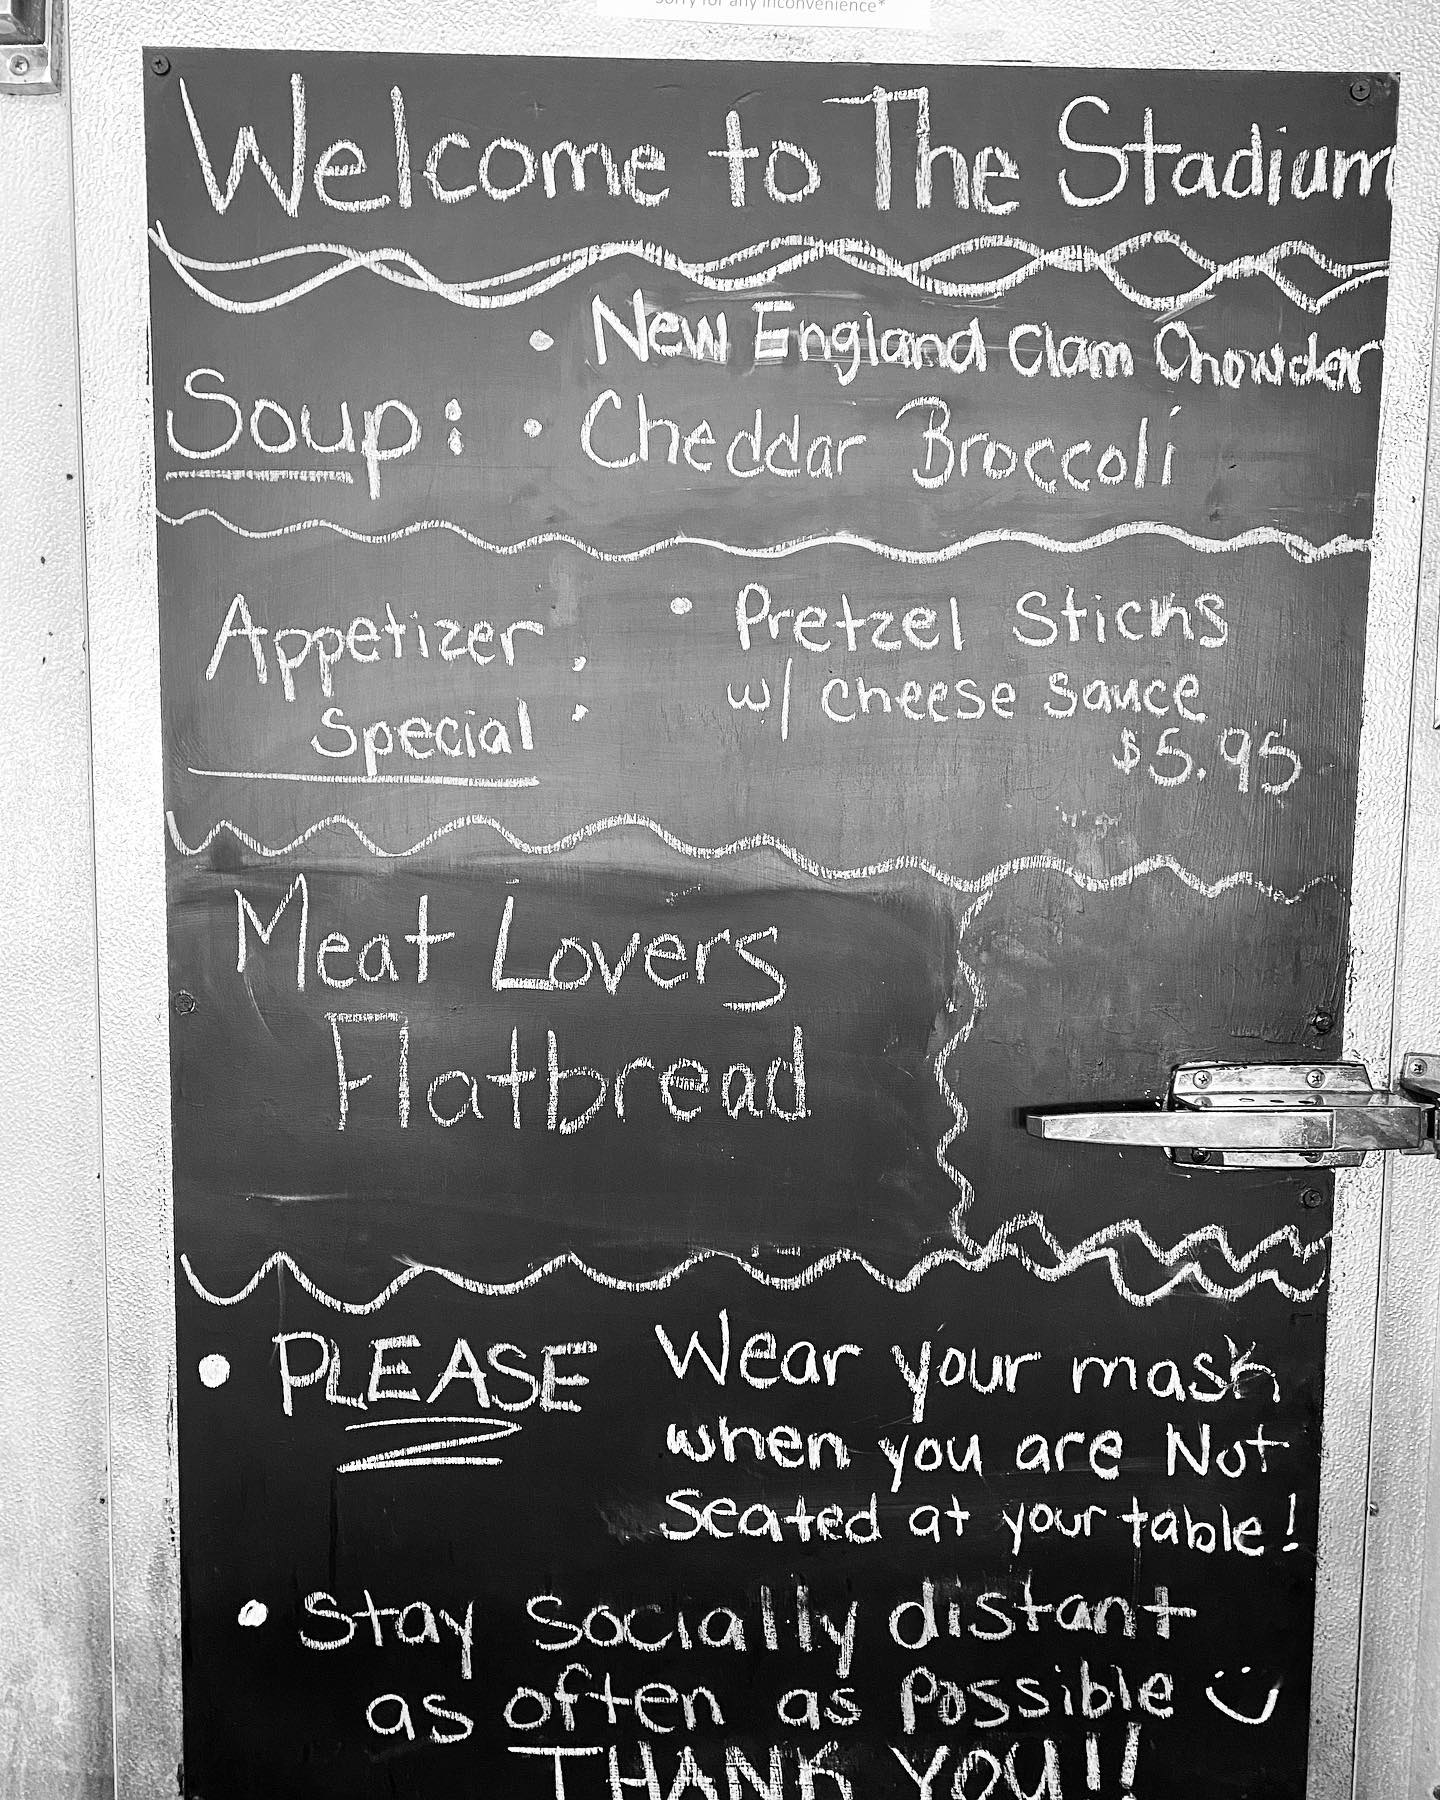 sorry for any inconvenience*
Welcome to The Stadium
Soup:
• New England Clam Chowder
• Cheddar Broccoli
Appetizer
Special :
• Pretzel Sticks
w/ cheese sauce
$5.95
Meat Lovers
Flatbread
• PLEASE Wear your mask
when you are Not
Seated at your table!
• Stay socially distant
as often as possible
THANK YOU!!